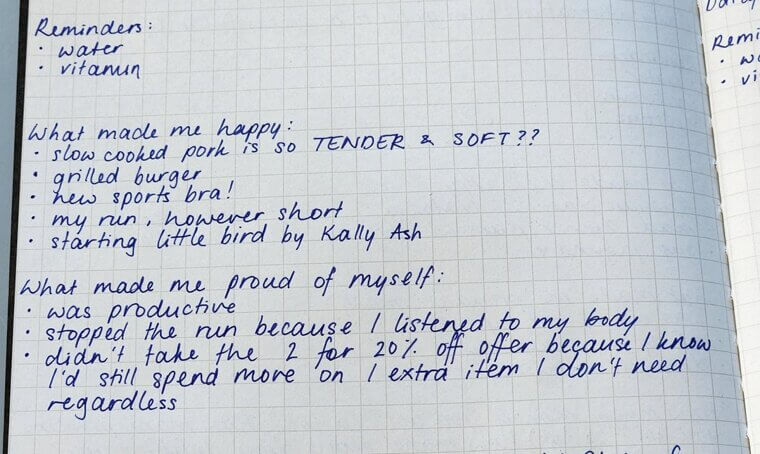 Reminders:
• water
• vitamin
What made me happy:
• slow cooked pork is so TENDER & SOFT??
• grilled burger
• new sports bra!
• my run, however short
• starting little bird by Kally Ash
What made me proud of myself:
• was productive
• stopped the run because I listened to my body
• didn't take the 2 for 20% off offer because I know
I'd still spend more on 1 extra item I don't need
regardless
Remi
• wa
• vi